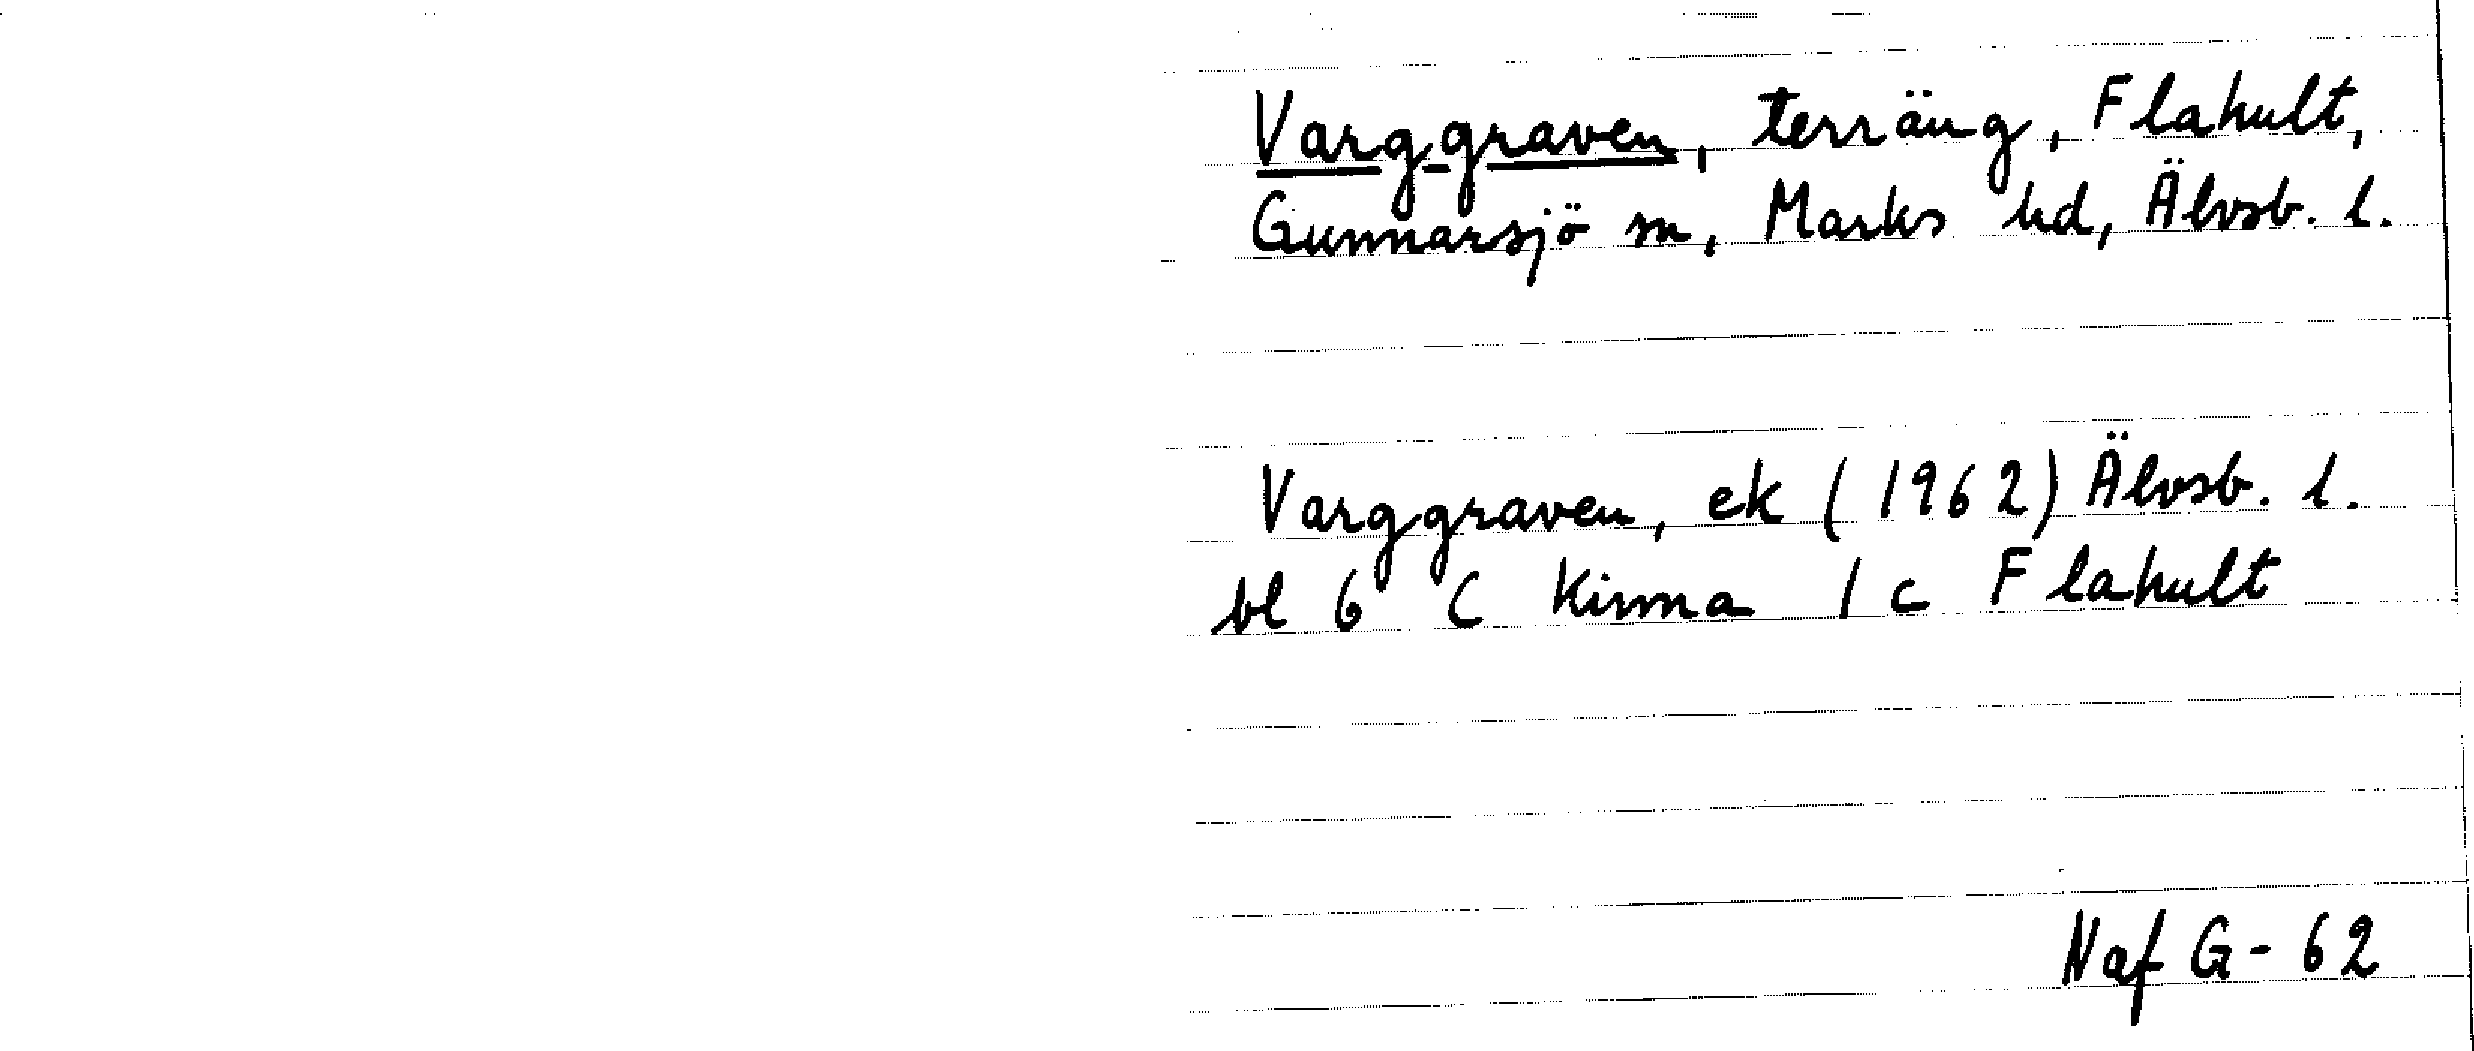 Varggraven, terräng, Flahult,
Gunnarsjö sn, Marks hd, Älvsb. l.
Varggraven, ek (1962) Älvsb. l.
bl 6 C Kinna 1 c Flahult
Naf G-62